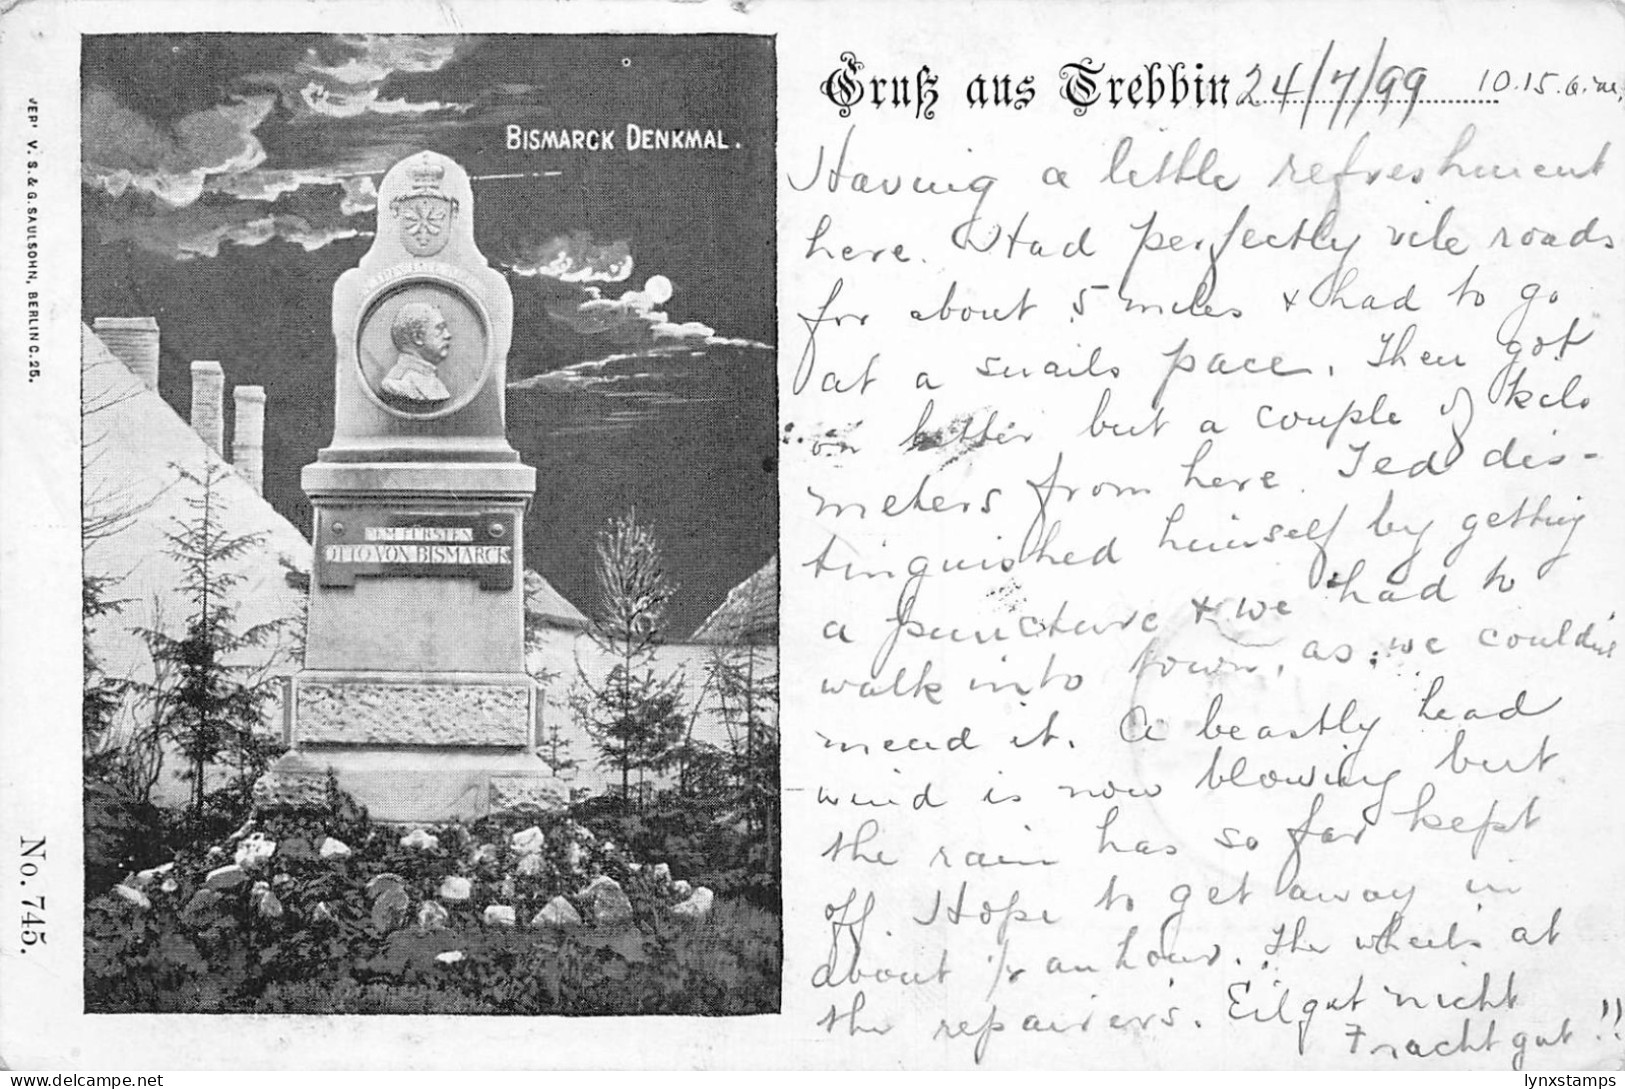 VER' V. S. & G. SAULSOHN, BERLIN C. 25.
No. 745.
BISMARCK DENKMAL.
DEM FÜRSTEN
OTTO VON BISMARCK
Gruß aus Trebbin 24/7/99 10.15. a.m.
Having a little refreshment
here. Had perfectly vile roads
for about 5 miles & had to go
at a snails pace. Then got
on better but a couple of kilo
meters from here. Ted dis-
tinguished himself by getting
a puncture & we had to
walk into town, as we couldn't
mend it. A beastly head
wind is now blowing but
the rain has so far kept
off. Hope to get away in
about ½ an hour. The wheel's at
the repairers. Eilgut nicht
Frachtgut !!
lynxstamps